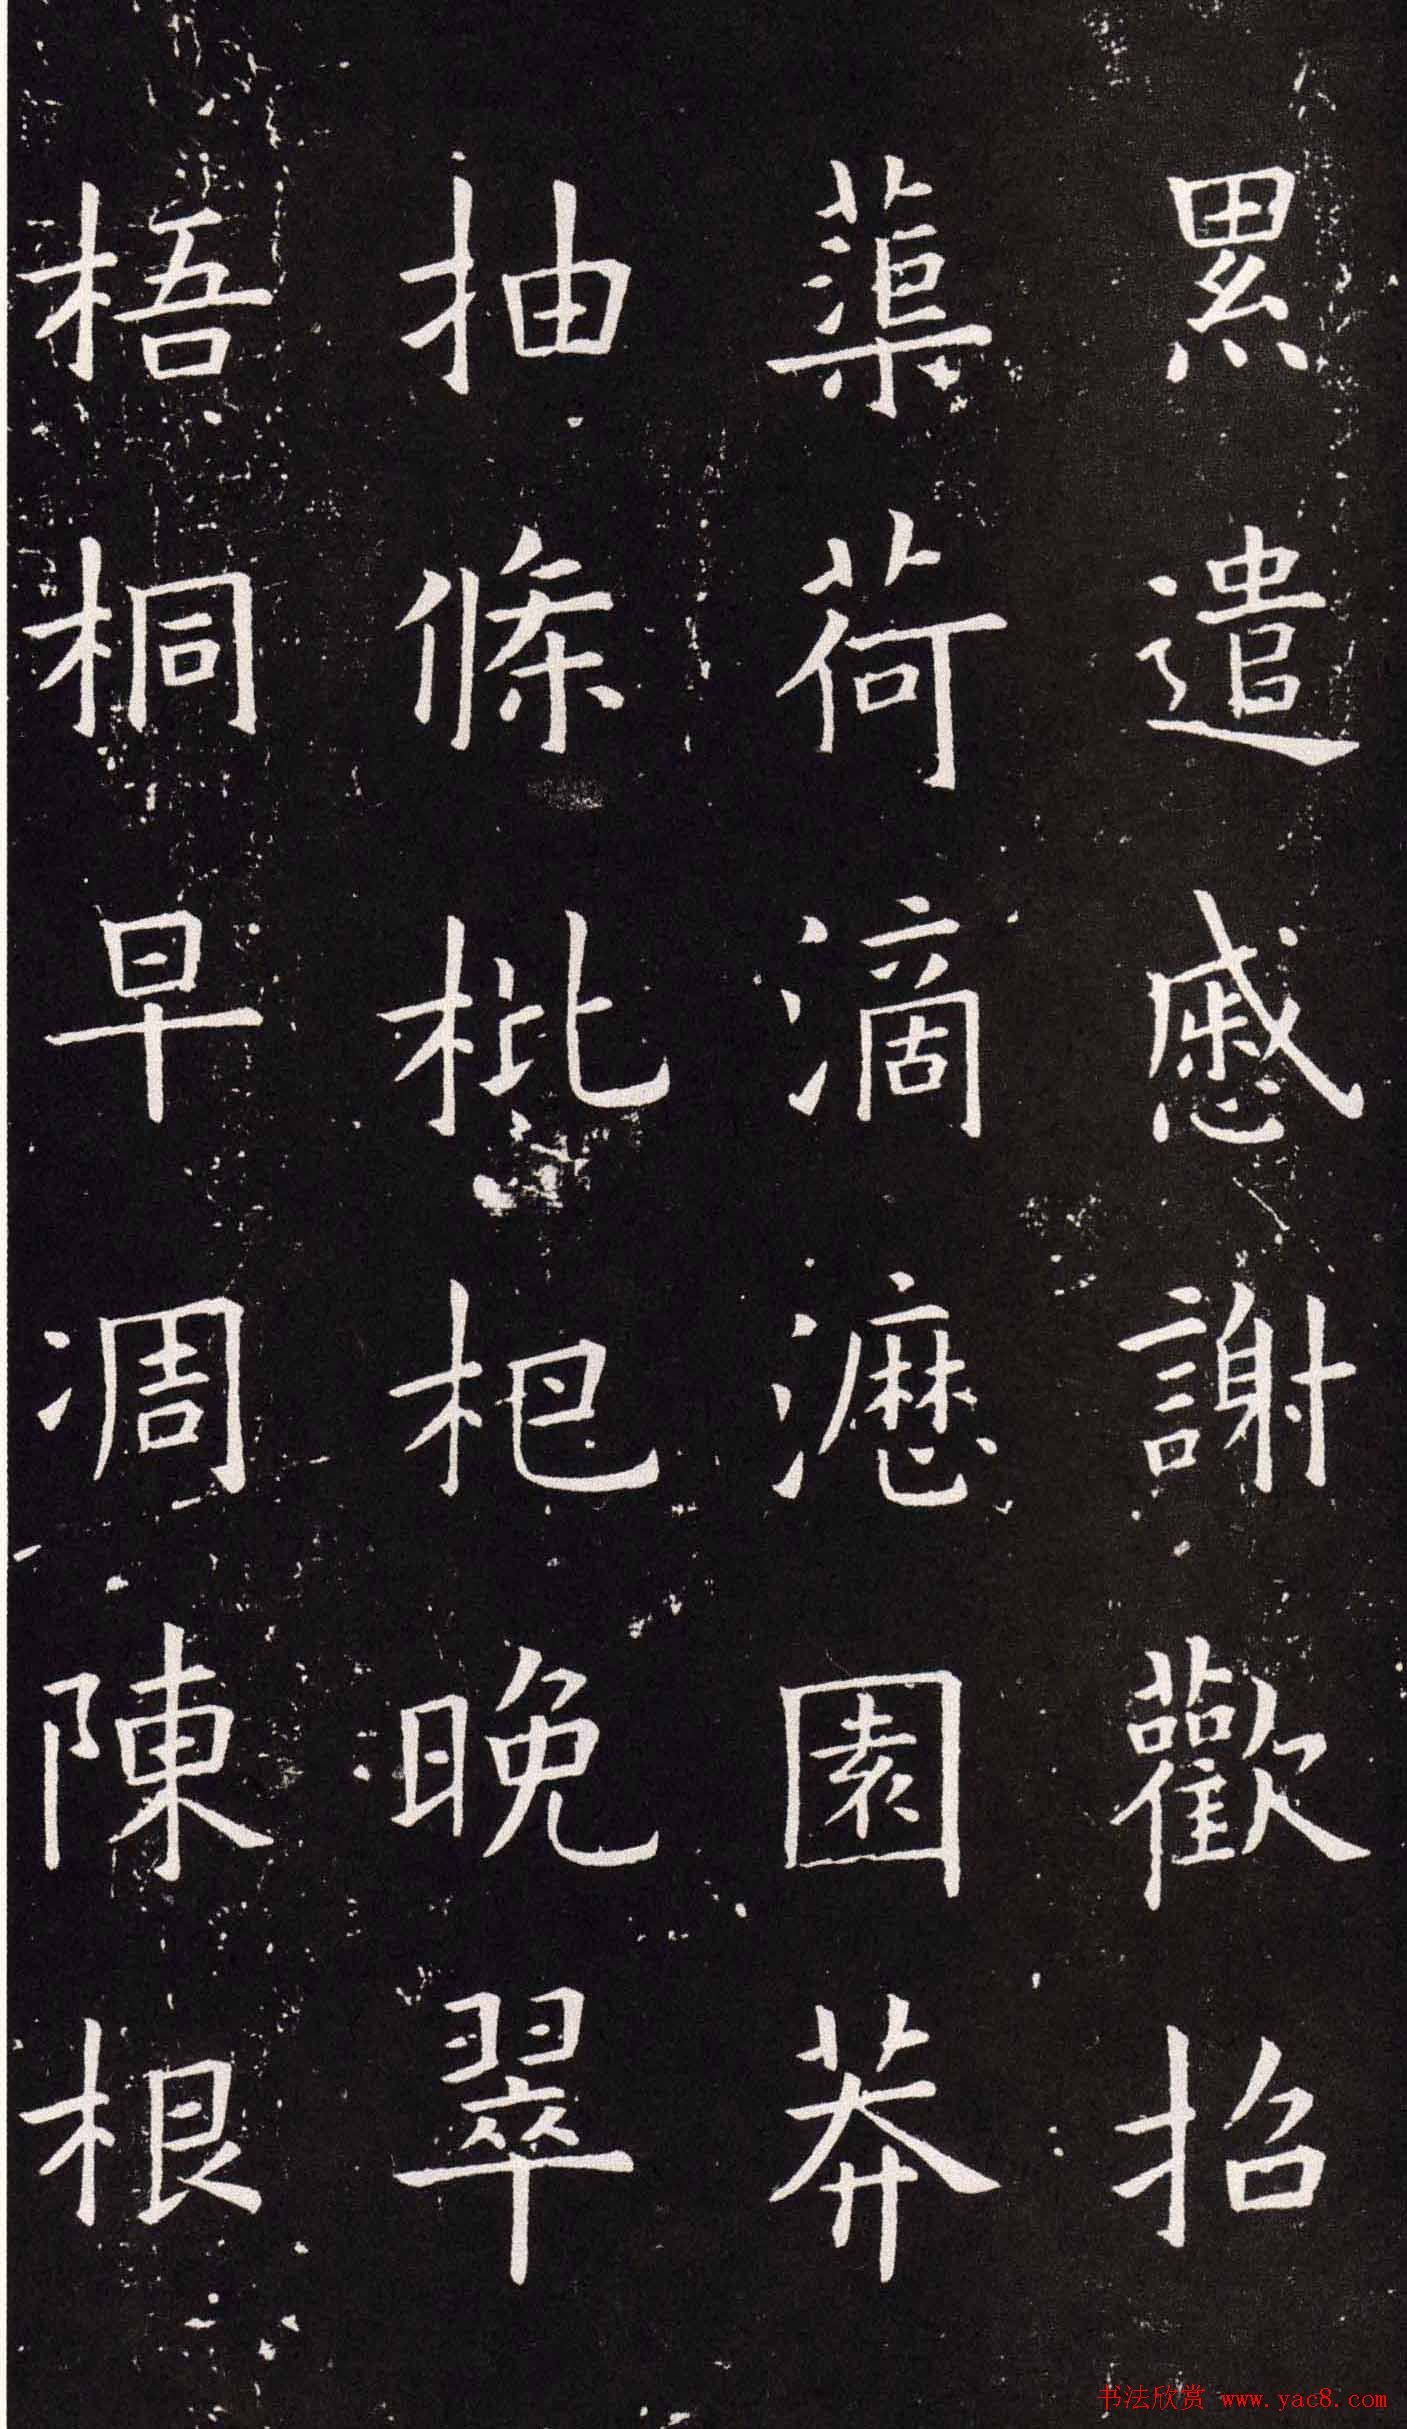 累遣慼謝歡招
蕖荷滴瀝園莽
抽條枇杷晚翠
梧桐早凋陳根
书法欣赏 www.yac8.com